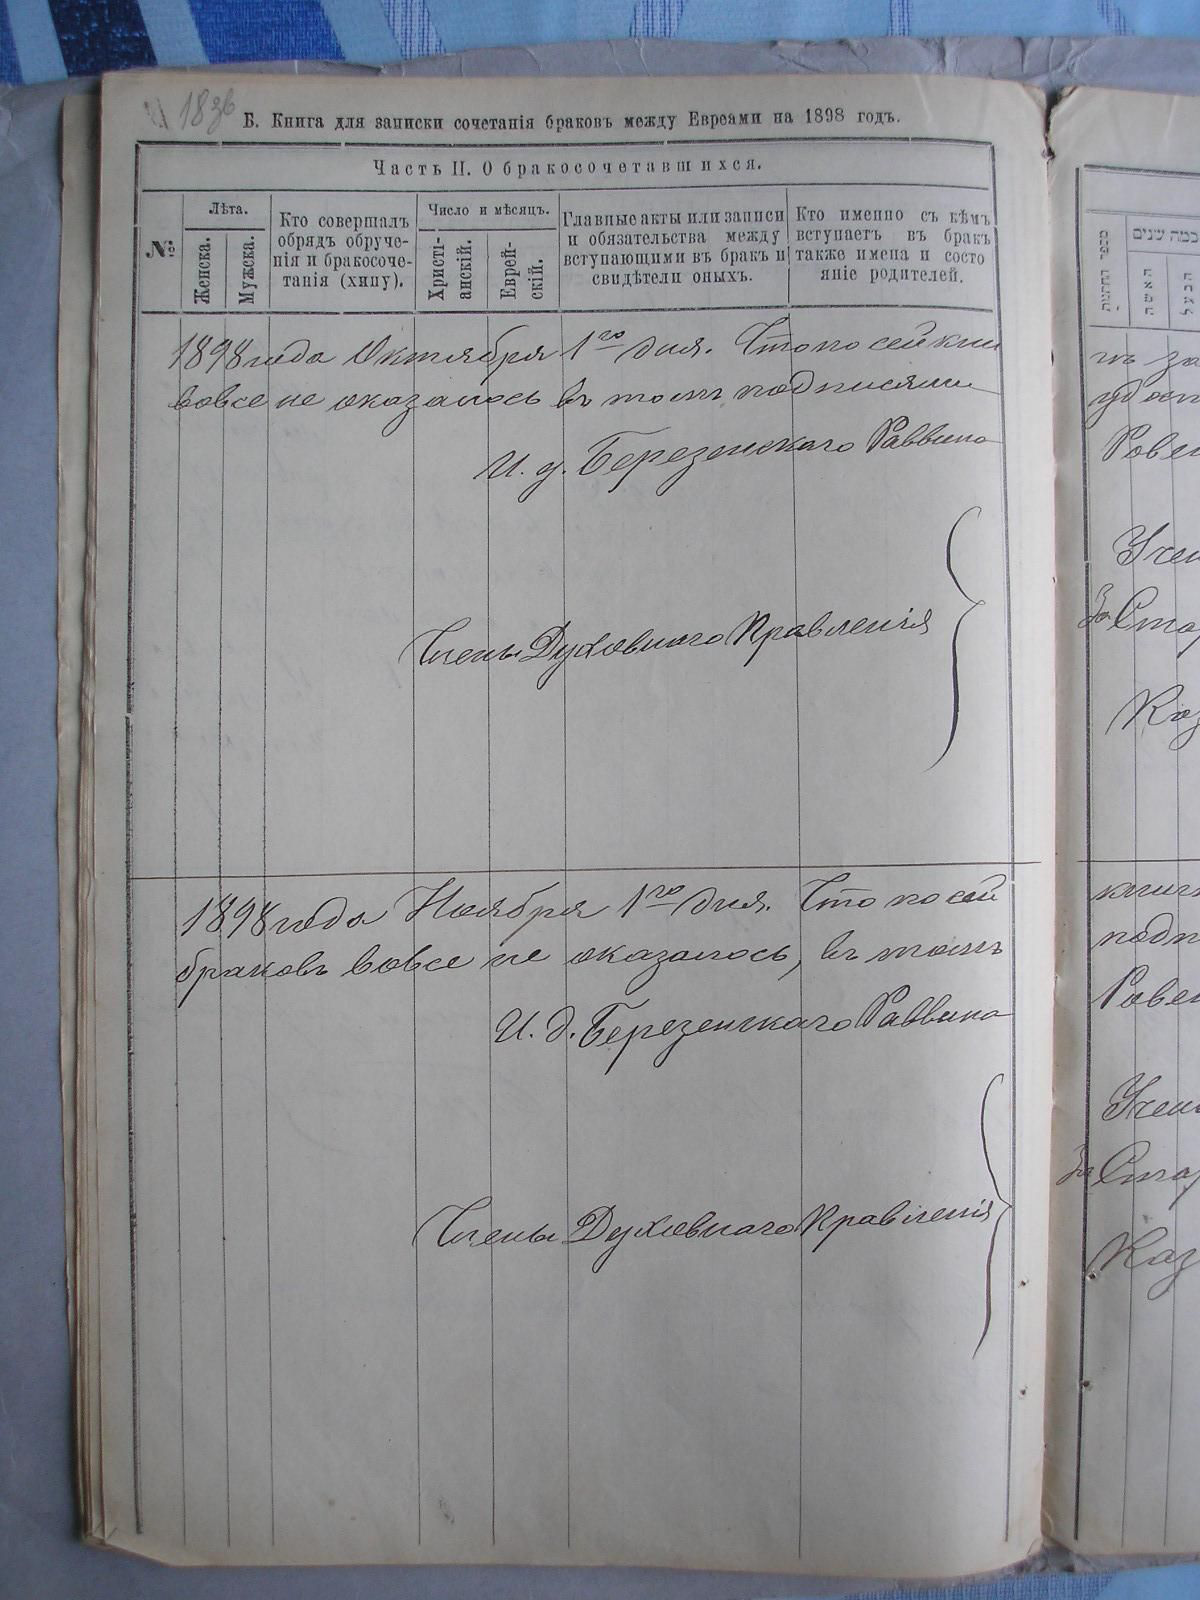 183б
Б. Книга для записки сочетанія браковъ между Евреами на 1898 годъ.
Часть II. О бракосочетавшихся.
№
Лѣта.
Женска.
Мужска.
Кто совершалъ
обрядъ обруче-
нія и бракосоче-
танія (хипу).
Число и мѣсяцъ.
Христі-
анскій.
Еврей-
скій.
Главные акты или записи
и обязательства между
вступающими въ бракъ и
свидѣтели оныхъ.
Кто именно съ кѣмъ
вступаетъ въ бракъ
также имена и состо
яніе родителей.
1898 года Октября 1го дня. Что по сей кни
вовсе не оказалось въ томъ подписями
И. д. Березенскаго Раввина
Члены Духовнаго Правленія
1898 года Ноября 1го дня. Что по сей
браковъ вовсе не оказалось, въ томъ
И. д. Березенскаго Раввина
Члены Духовнаго Правленія
מספר החתונות
כמה שנים
האשה
הבעל
гъ за
Ровен
Учен
За Стар
Каз
книг
подп
Ровен
Учен
За Стар
Каз